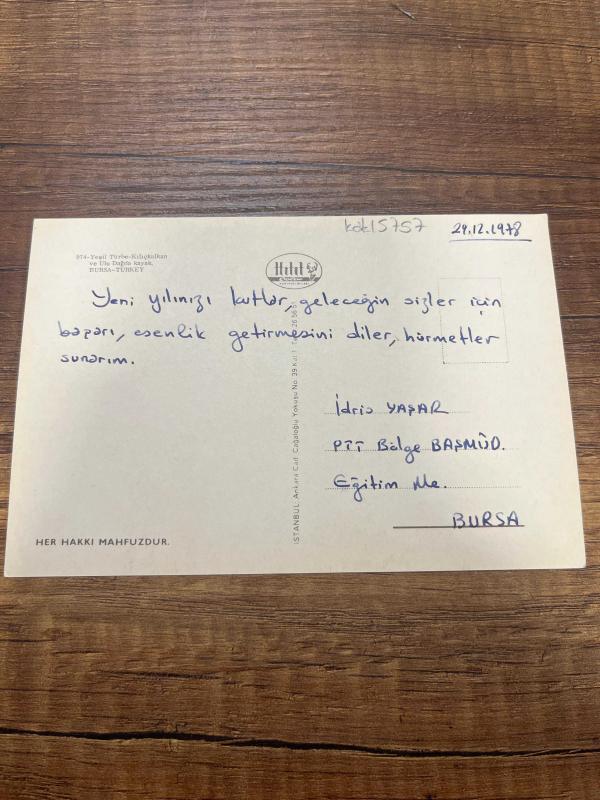 kök15757
29.12.1978
974-Yeşil Türbe-Kılıçkalkan
ve Ulu Dağda kayak,
BURSA-TURKEY
Hitit
Yeni yılınızı kutlar, geleceğin sizler için
başarı, esenlik getirmesini diler, hürmetler
sunarım.
İSTANBUL: Ankara Cad. Cağaloğlu Yokuşu No. 39 Kat 1
İdris YAŞAR
PTT Bölge BAŞMÜD.
Eğitim Me.
BURSA
HER HAKKI MAHFUZDUR.